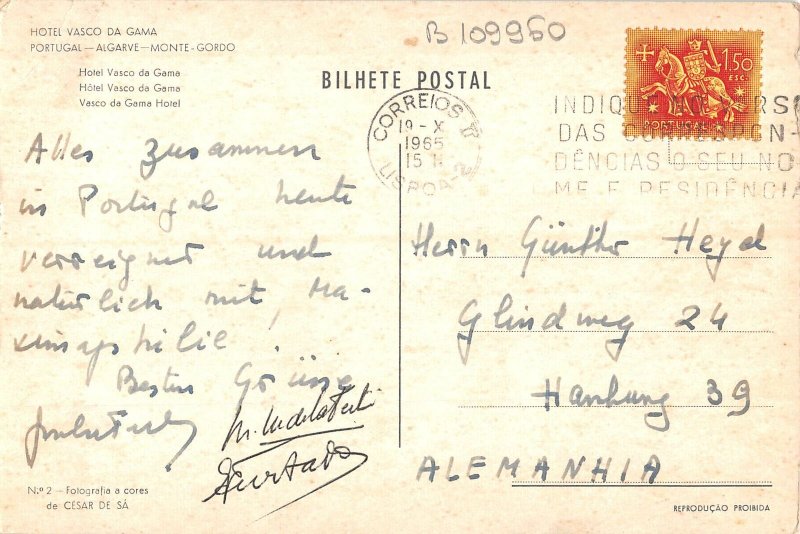 HOTEL VASCO DA GAMA
PORTUGAL—ALGARVE—MONTE-GORDO
Hotel Vasco da Gama
Hôtel Vasco da Gama
Vasco da Gama Hotel
B 109960
BILHETE POSTAL
1.50
ESC.
PORTUGAL
CORREIOS
19-X
1965
15 H
LISBOA 2
INDIQUE NO VERSO
DAS CORRESPON-
DÊNCIAS O SEU NO
ME E RESIDÊNCIA
Alles zusammen
in Portugal heute
verreignet und
natürlich mit Ma-
ximaphilie!
Besten Grüsse
Furtado
Herrn Günther Heyd
Glindweg 24
Hamburg 39
ALEMANHIA
N.º 2 - Fotografia a cores
de CESAR DE SÁ
REPRODUÇÃO PROIBIDA